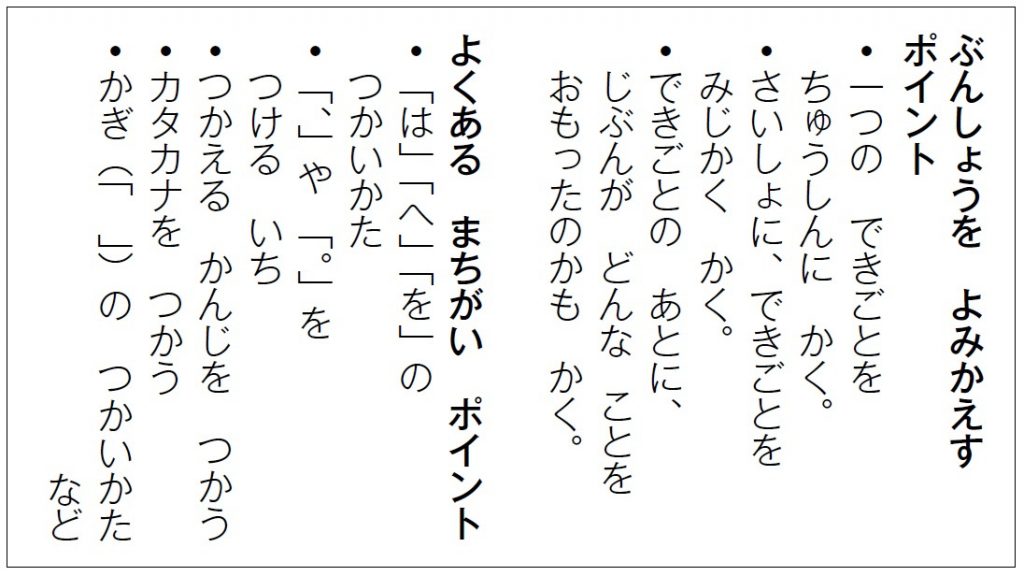 ぶんしょうを　よみかえす
ポイント
・一つの　できごとを
ちゅうしんに　かく。
・さいしょに、できごとを
みじかく　かく。
・できごとの　あとに、
じぶんが　どんな　ことを
おもったのかも　かく。
よくある　まちがい　ポイント
・「は」「へ」「を」の
つかいかた
・「、」や　「。」を
つける　いち
・つかえる　かんじを　つかう
・カタカナを　つかう
・かぎ（「　」）の　つかいかた
など